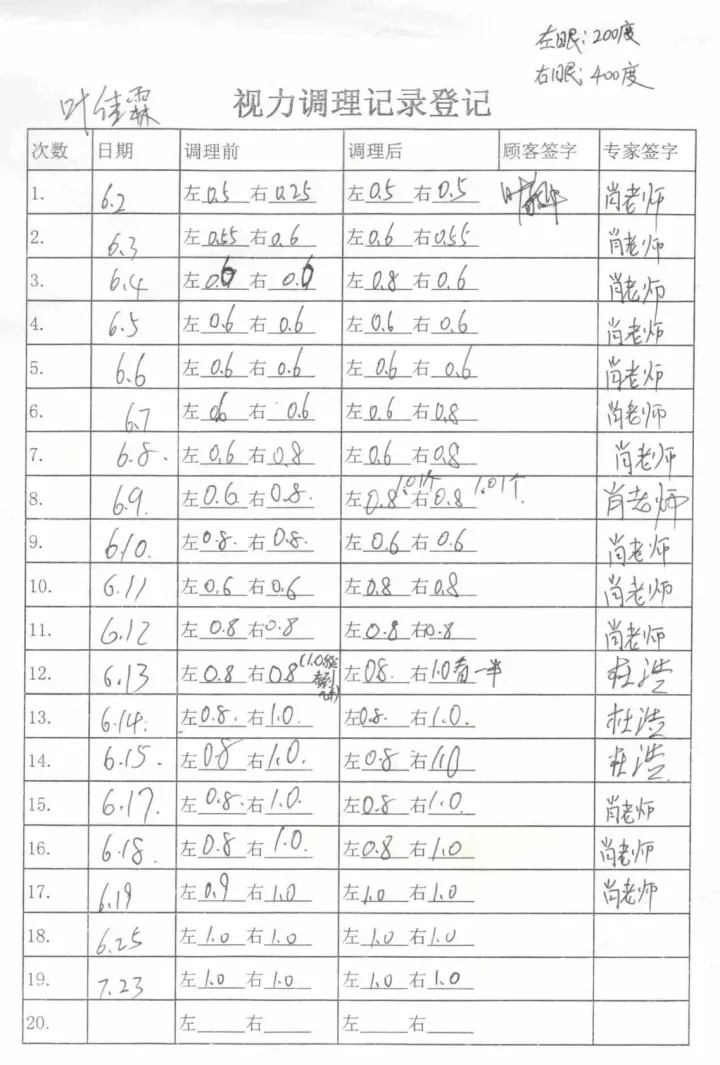 左眼：200度
右眼：400度
叶佳霖 视力调理记录登记
次数 日期 调理前 调理后 顾客签字 专家签字
1. 6.2 左0.5 右0.25 左0.5 右0.5 肖老师
2. 6.3 左0.55 右0.6 左0.6 右0.55 肖老师
3. 6.4 左0.6 右0.6 左0.8 右0.6 肖老师
4. 6.5 左0.6 右0.6 左0.6 右0.6 肖老师
5. 6.6 左0.6 右0.6 左0.6 右0.6 肖老师
6. 6.7 左0.6 右0.6 左0.6 右0.8 肖老师
7. 6.8. 左0.6 右0.8 左0.6 右0.8 肖老师
8. 6.9. 左0.6 右0.8. 左0.8 1.01个 右0.8 1.01个 肖老师
9. 6.10. 左0.8. 右0.8. 左0.6 右0.6 肖老师
10. 6.11 左0.6 右0.6 左0.8 右0.8 肖老师
11. 6.12 左0.8 右0.8 左0.8 右0.8 肖老师
12. 6.13 左0.8 右0.8 (1.0能看到 左0.8. 右1.0看一半 杜浩
13. 6.14. 左0.8. 右1.0. 左0.8. 右1.0. 杜浩
14. 6.15. 左0.8 右1.0. 左0.8 右1.0 杜浩
15. 6.17. 左0.8. 右1.0. 左0.8 右1.0. 肖老师
16. 6.18. 左0.8 右1.0. 左0.8 右1.0 肖老师
17. 6.19 左0.9 右1.0 左1.0 右1.0 肖老师
18. 6.25 左1.0 右1.0 左1.0 右1.0
19. 7.23 左1.0 右1.0 左1.0 右1.0
20. 左 右 左 右